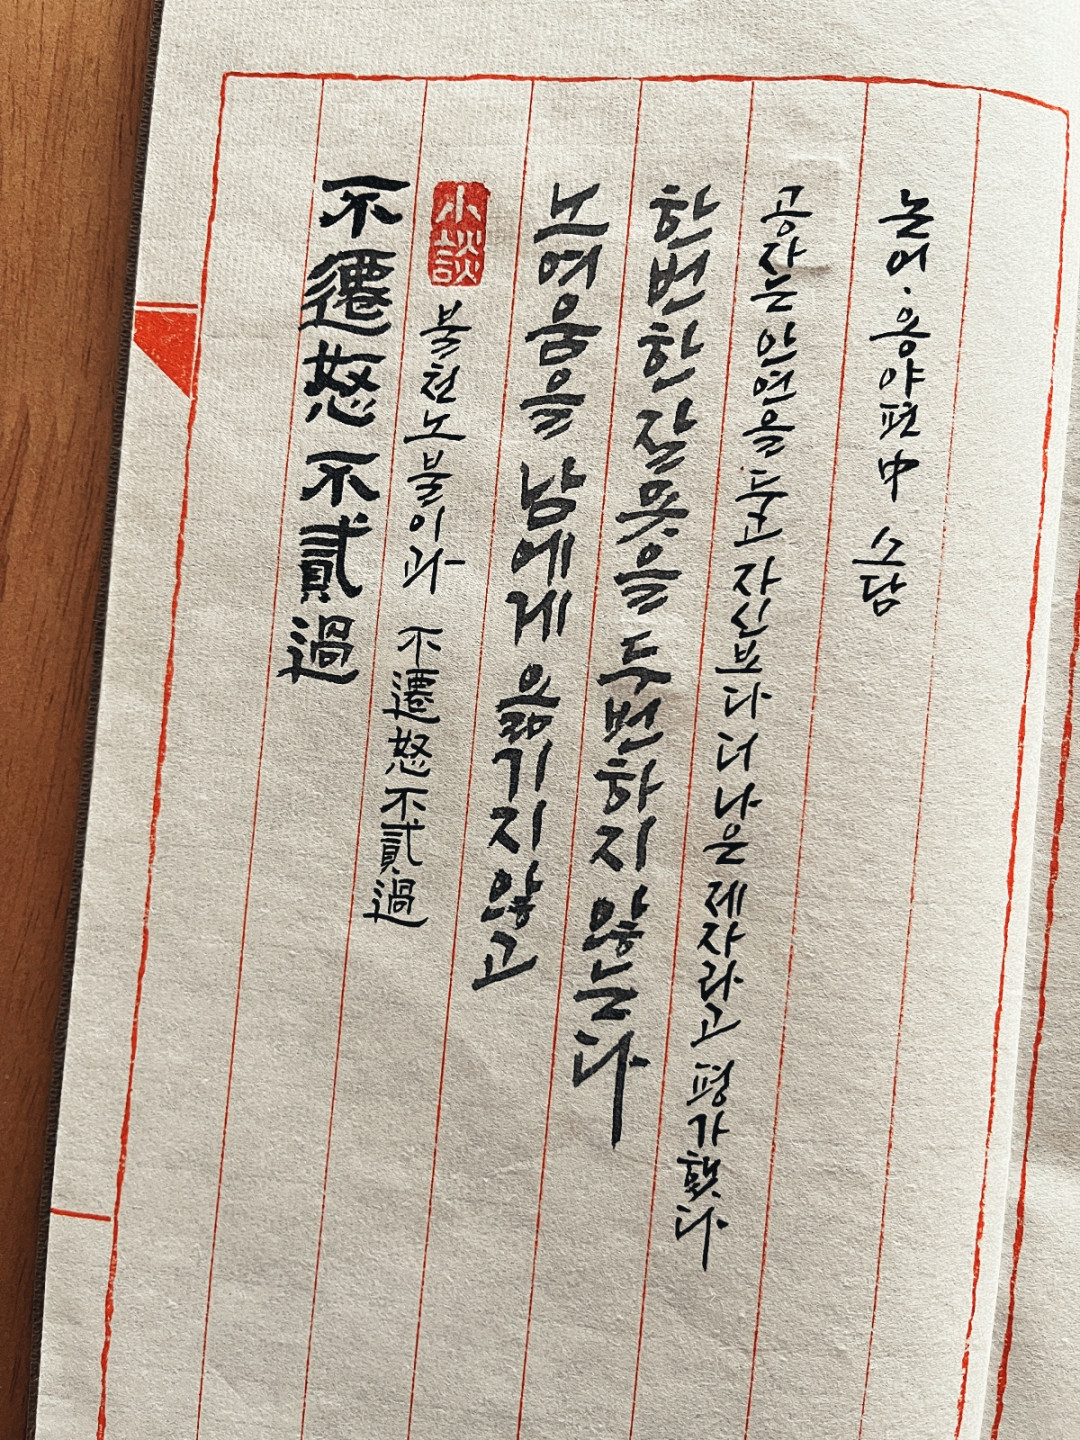 不遷怒不貳過
小談
불천노불이과 不遷怒不貳過
노여움을 남에게 옮기지 않고
한번한 잘못을 두번하지 않는다
공자는 안연을 두고 자신보다 더 나은 제자라고 평가했다
논어·옹야편中 소담